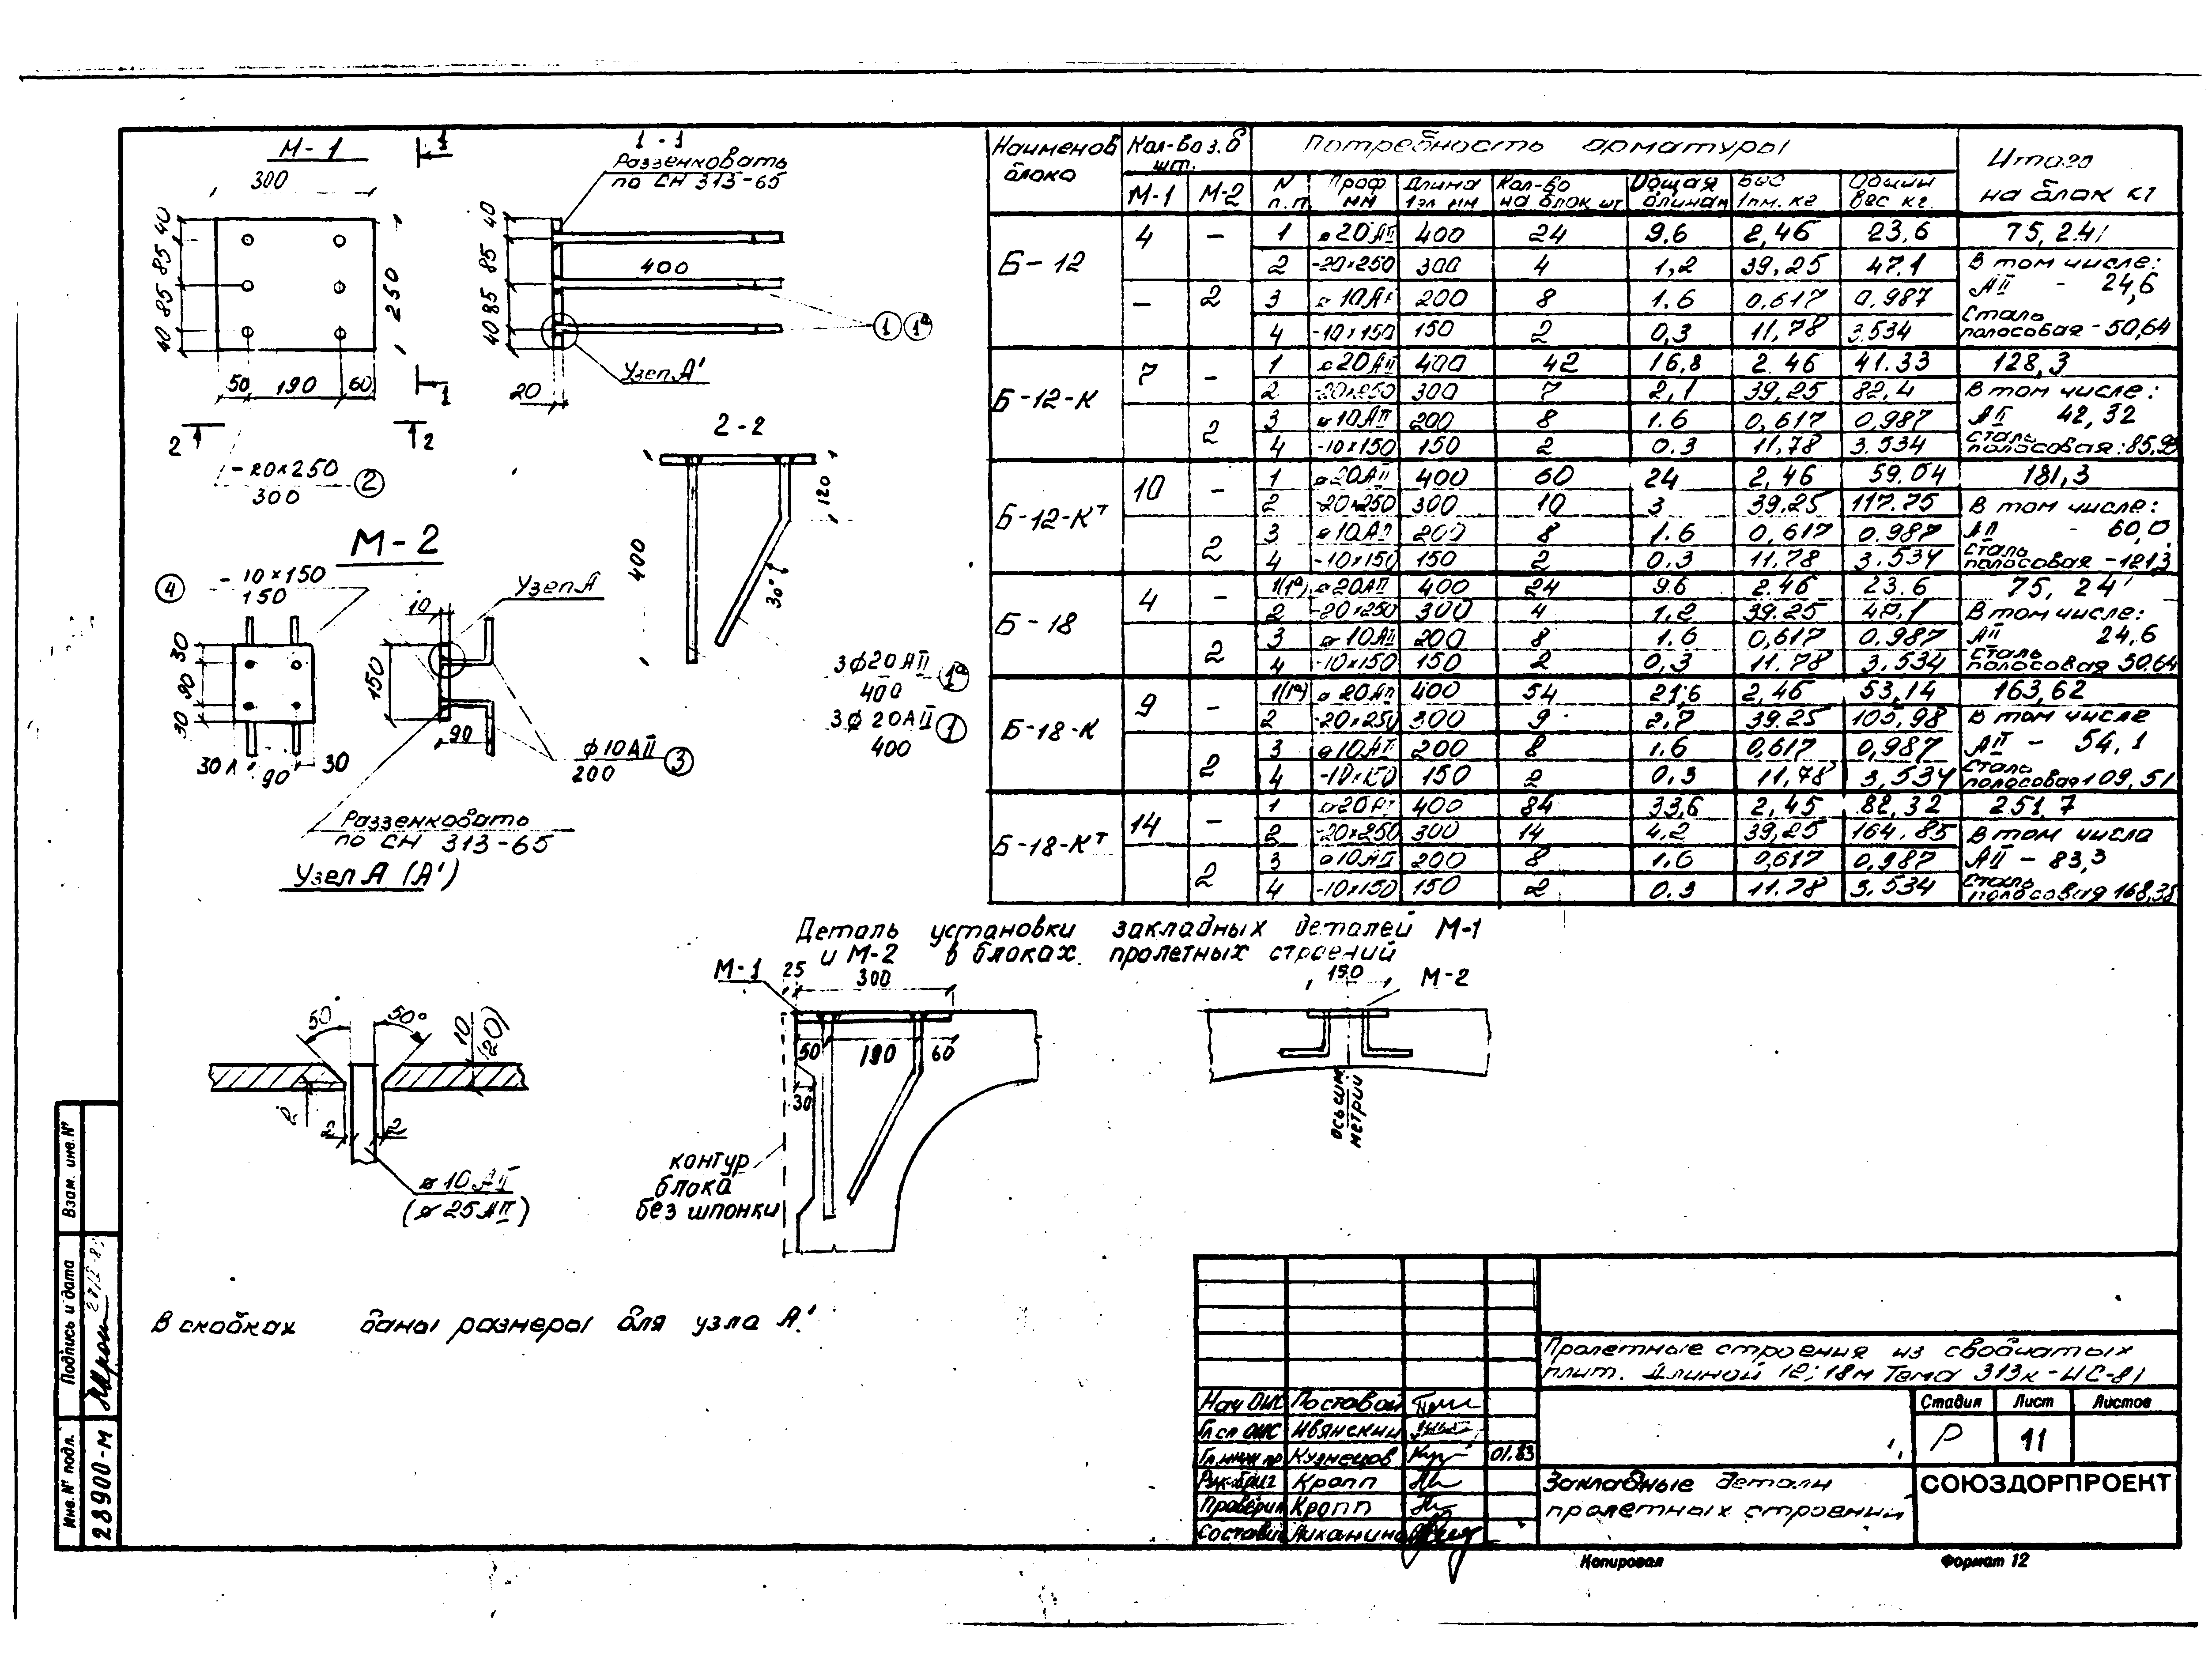 М-1
300
1
40
85
85
40
250
50 190 60
1
2
2
- 20×250
300
2
1-1
Раззенковать
по СН 313-65
40
85
85
40
400
1 1а
Узел А'
20
2-2
400
120
30°
3ϕ20АII
400
1а
3ϕ20АII
400
1
М-2
4
- 10×150
150
30
90
30
30 90 30
10
Узел А
150
90
ϕ10АII
200
3
Раззенковать
по СН 313-65
Узел А (А')
50° 50°
10
(20)
2
2 2
⌀10АII
(⌀25АII)
В скобках даны размеры для узла А'.
Наименов блока | Кол-во з.д шт. | Потребность арматуры | Итого на блок кг
М-1 | М-2 | N п.п | Проф мм | Длина 1эл мм | Кол-во на блок шт | Общая длина м | Вес 1пм. кг | Общий вес кг.
Б-12 | 4 | - | 1 | ⌀20АII | 400 | 24 | 9.6 | 2,46 | 23.6 | 75,24
2 | -20×250 | 300 | 4 | 1,2 | 39,25 | 47.1 | В том числе:
- | 2 | 3 | ⌀10АII | 200 | 8 | 1.6 | 0.617 | 0.987 | АII - 24,6
4 | -10×150 | 150 | 2 | 0,3 | 11,78 | 3.534 | Сталь полосовая - 50,64
Б-12-К | 7 | - | 1 | ⌀20АII | 400 | 42 | 16,8 | 2.46 | 41.33 | 128,3
2 | -20×250 | 300 | 7 | 2,1 | 39,25 | 82,4 | В том числе:
2 | 3 | ⌀10АII | 200 | 8 | 1.6 | 0,617 | 0,987 | АII 42,32
4 | -10×150 | 150 | 2 | 0.3 | 11,78 | 3.534 | сталь полосовая:
Б-12-Кт | 10 | - | 1 | ⌀20АII | 400 | 60 | 24 | 2,46 | 59.04 | 181,3
2 | -20×250 | 300 | 10 | 3 | 39.25 | 117.75 | В том числе:
2 | 3 | ⌀10АII | 200 | 8 | 1.6 | 0,617 | 0.987 | АII - 60,0
4 | -10×150 | 150 | 2 | 0.3 | 11.78 | 3.534 | Сталь полосовая - 121,3
Б-18 | 4 | - | 1(1а) | ⌀20АII | 400 | 24 | 9.6 | 2.46 | 23.6 | 75,24
2 | -20×250 | 300 | 4 | 1.2 | 39.25 | 47,1 | В том числе:
2 | 3 | ⌀10АII | 200 | 8 | 1.6 | 0,617 | 0.987 | АII 24,6
4 | -10×150 | 150 | 2 | 0,3 | 11.78 | 3.534 | Сталь полосовая 50,64
Б-18-К | 9 | - | 1(1а) | ⌀20АII | 400 | 54 | 21,6 | 2,46 | 53,14 | 163,62
2 | -20×250 | 300 | 9 | 2,7 | 39.25 | 105,98 | В том числе
2 | 3 | ⌀10АII | 200 | 8 | 1.6 | 0,617 | 0,987 | АII - 54,1
4 | -10×150 | 150 | 2 | 0,3 | 11,78 | 3,534 | Сталь полосовая 109,51
Б-18-Кт | 14 | - | 1 | ⌀20АII | 400 | 84 | 33,6 | 2,45 | 82,32 | 251.7
2 | -20×250 | 300 | 14 | 4,2 | 39,25 | 164.85 | В том числа
2 | 3 | ⌀10АII | 200 | 8 | 1.6 | 0,617 | 0,987 | АII - 83,3
4 | -10×150 | 150 | 2 | 0.3 | 11.78 | 3.534 | Сталь полосовая 168,38
Деталь установки закладных деталей М-1
и М-2 в блоках пролетных строений
М-1 25 300
50 190 60
30
контур
блока
без шпонки
150
М-2
ось сим
метрии
Взам. инв. №
Подпись и дата
Инв. № подл.
28900-м
Пролетные строения из сводчатых
плит. Длиной 12; 18м Тема 313к-ИС-81
Нач ОИС Постовой
Гл сп ОИС Ивянский
Гл. инж пр Кузнецов 01.83
Рук. бриг Кропп
Проверил Кропп
Составил
Стадия Лист Листов
Р 11
Закладные детали
пролетных строений
СОЮЗДОРПРОЕКТ
Копировал Формат 12